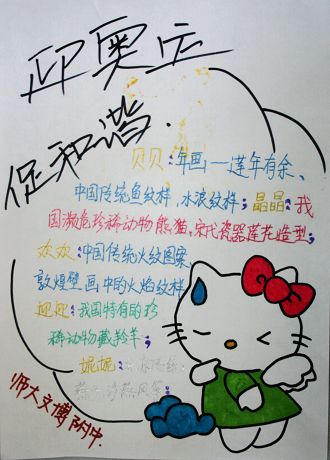 迎奥运
促和谐.
贝贝:年画—莲年有余、
中国传统鱼纹样,水浪纹样;晶晶:我
国濒危珍稀动物熊猫、宋代瓷器莲花造型;
欢欢:中国传统火纹图案
敦煌壁画中的火焰纹样
迎迎:我国特有的珍
稀动物藏羚羊;
妮妮:
师大文博附中.